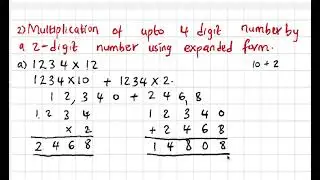 2) Multiplication of upto 4 digit number by
a 2-digit number using expanded form.
a) 1234 x 12
10 + 2
1234 x 10 + 1234 x 2.
12,340 + 2468
1 2 3 4
1 2 3 4 0
x 2
+ 2 4 6 8
2 4 6 8
1 4 8 0 8